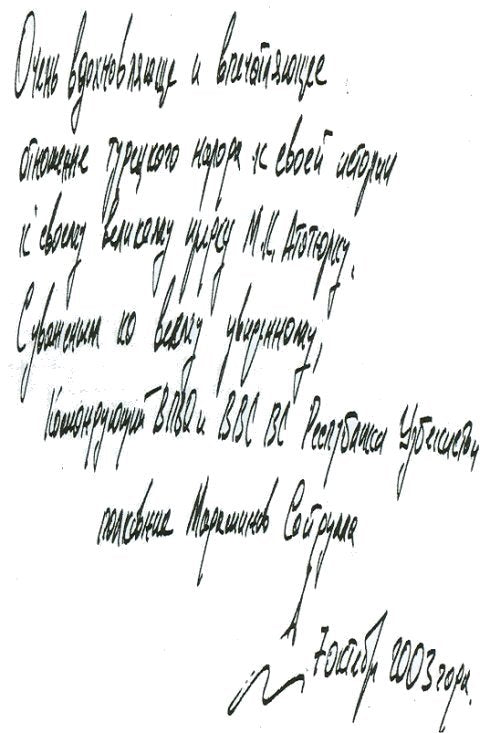 Очень вдохновляюще и впечатляющее
отношение турецкого народа к своей истории
к своему великому М.К. Ататюрку.
С уважением ко всему увиденному,
Командующий ВПВО и ВВС ВС Республики Узбекистан
полковник Сайдулла
7 октября 2003 года.